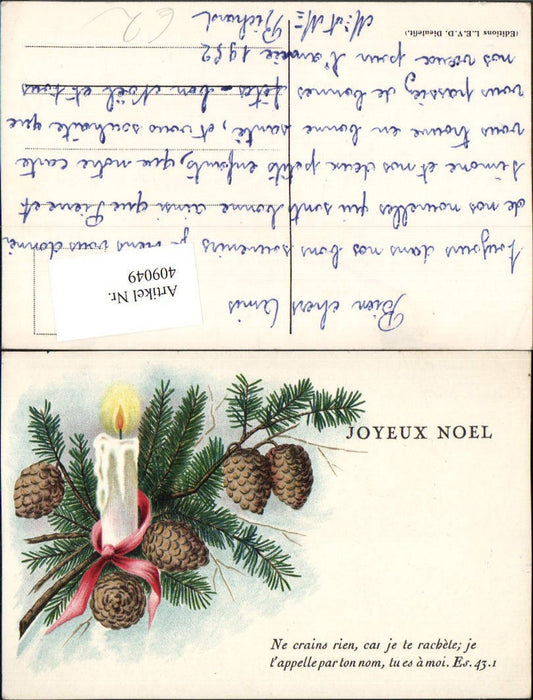 Bien chers Amis
toujours dans nos bons souvenirs je viens vous donner
de nos nouvelles qui sont bonne ainsi que Pierre et
Simone et nos deux petits enfants, que notre carte
vous trouve en bonne santé, et vous souhaite que
vous passiez de bonnes fêtes - bon Noël et tous
nos vœux pour l'année 1952
Mr et Mme Béchard
(Editions L.E.V.D. Dieulefit.)
62
Artikel Nr.
409049
JOYEUX NOEL
Ne crains rien, car je te rachète; je
t'appelle par ton nom, tu es à moi. Es. 43.1